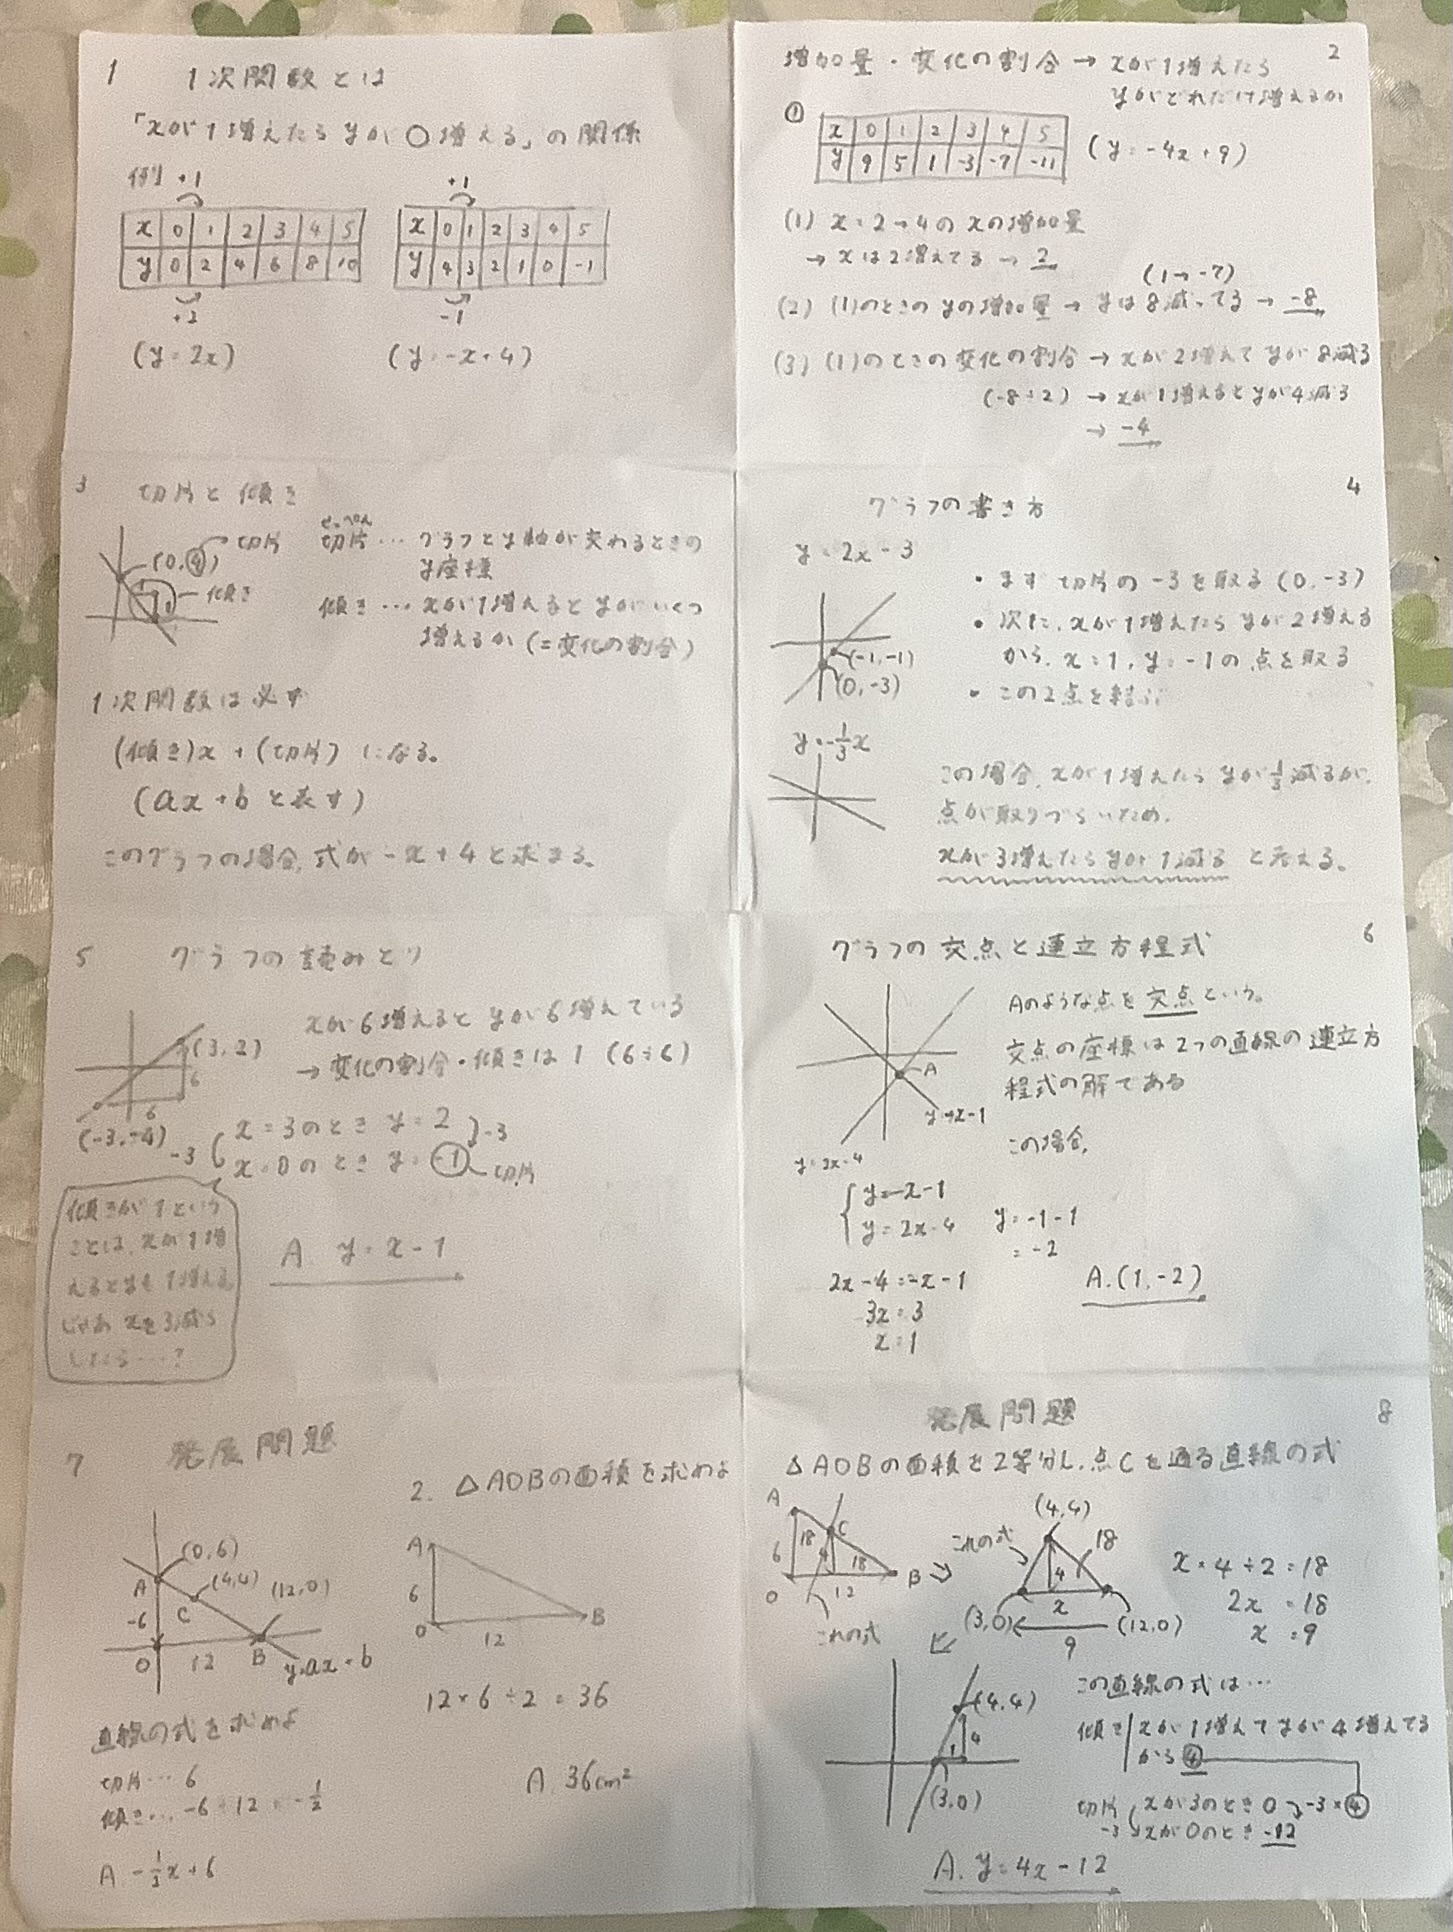 1
1次関数とは
「xが1増えたらyが○増える」の関係
例 +1
x 0 1 2 3 4 5
y 0 2 4 6 8 10
+2
(y=2x)
+1
x 0 1 2 3 4 5
y 4 3 2 1 0 -1
-1
(y=-x+4)
2
増加量・変化の割合→xが1増えたら
yがどれだけ増えるか
①
x 0 1 2 3 4 5
y 9 5 1 -3 -7 -11
(y=-4x+9)
(1) x=2→4のxの増加量
→xは2増えてる→2
(1→-7)
(2) (1)のときのyの増加量→yは8減ってる→-8
(3) (1)のときの変化の割合→xが2増えてyが8減る
(-8÷2) →xが1増えるとyが4減る
→-4
3
切片と傾き
(0,4) 切片
傾き
せっぺん
切片…グラフとy軸が交わるときの
y座標
傾き…xが1増えるとyがいくつ
増えるか(=変化の割合)
1次関数は必ず
(傾き)x+(切片)になる。
(ax+bと表す)
このグラフの場合,式が-x+4と求まる。
4
グラフの書き方
y=2x-3
(-1,-1)
(0,-3)
・まず切片の-3を取る(0,-3)
・次に、xが1増えたらyが2増える
から、x=1,y=-1の点を取る
・この2点を結ぶ
y=-1/3x
この場合,xが1増えたらyが1/3減るが,
点が取りづらいため,
xが3増えたらyが1減ると考える。
5
グラフの読みとり
(3,2)
6
6
(-3,-4)
xが6増えるとyが6増えている
→変化の割合・傾きは1 (6÷6)
x=3のときy=2
-3
-3
x=0のときy=-1
切片
傾きが1という
ことは,xが1増
えるとyも1増える
じゃあxを3減ら
したら……?
A. y=x-1
6
グラフの交点と連立方程式
A
y=-x-1
y=2x-4
Aのような点を交点という。
交点の座標は2つの直線の連立方
程式の解である
この場合,
y=-x-1
y=2x-4
2x-4=-x-1
3x=3
x=1
y=-1-1
=-2
A.(1,-2)
7
発展問題
(0,6)
A
(4,4)
C
(12,0)
-6
O
12
B
y=ax+b
直線の式を求めよ
切片…6
傾き…-6÷12=-1/2
A -1/2x+6
2. △AOBの面積を求めよ
A
6
O
12
B
12×6÷2=36
A. 36cm²
8
発展問題
△AOBの面積を2等分し,点Cを通る直線の式
A
C
6
18
4
18
O
12
B
これの式
これの式
(4,4)
18
4
x
(3,0)
(12,0)
9
x×4÷2=18
2x=18
x=9
(4,4)
4
1
(3,0)
この直線の式は…
傾き xが1増えてyが4増えてる
から④
切片 xが3のとき0
-3×④
-3
xが0のとき-12
A. y=4x-12